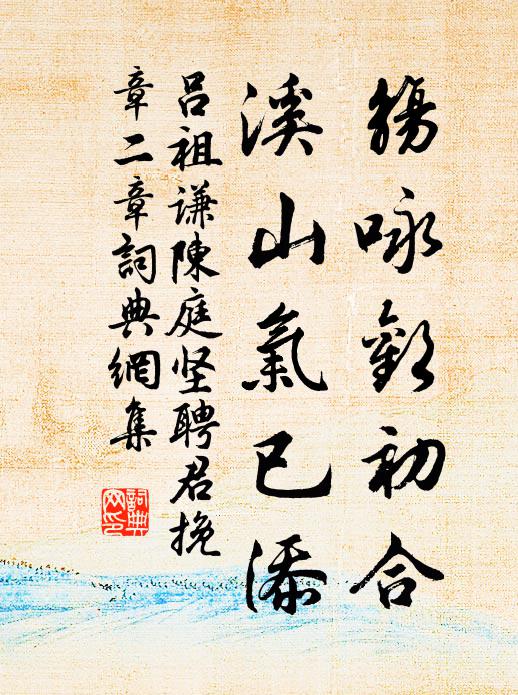 觴咏歡初合
溪山氣已添
吕祖谦陳庭坚聘君挽
章二章詞典網集
詞典
网印